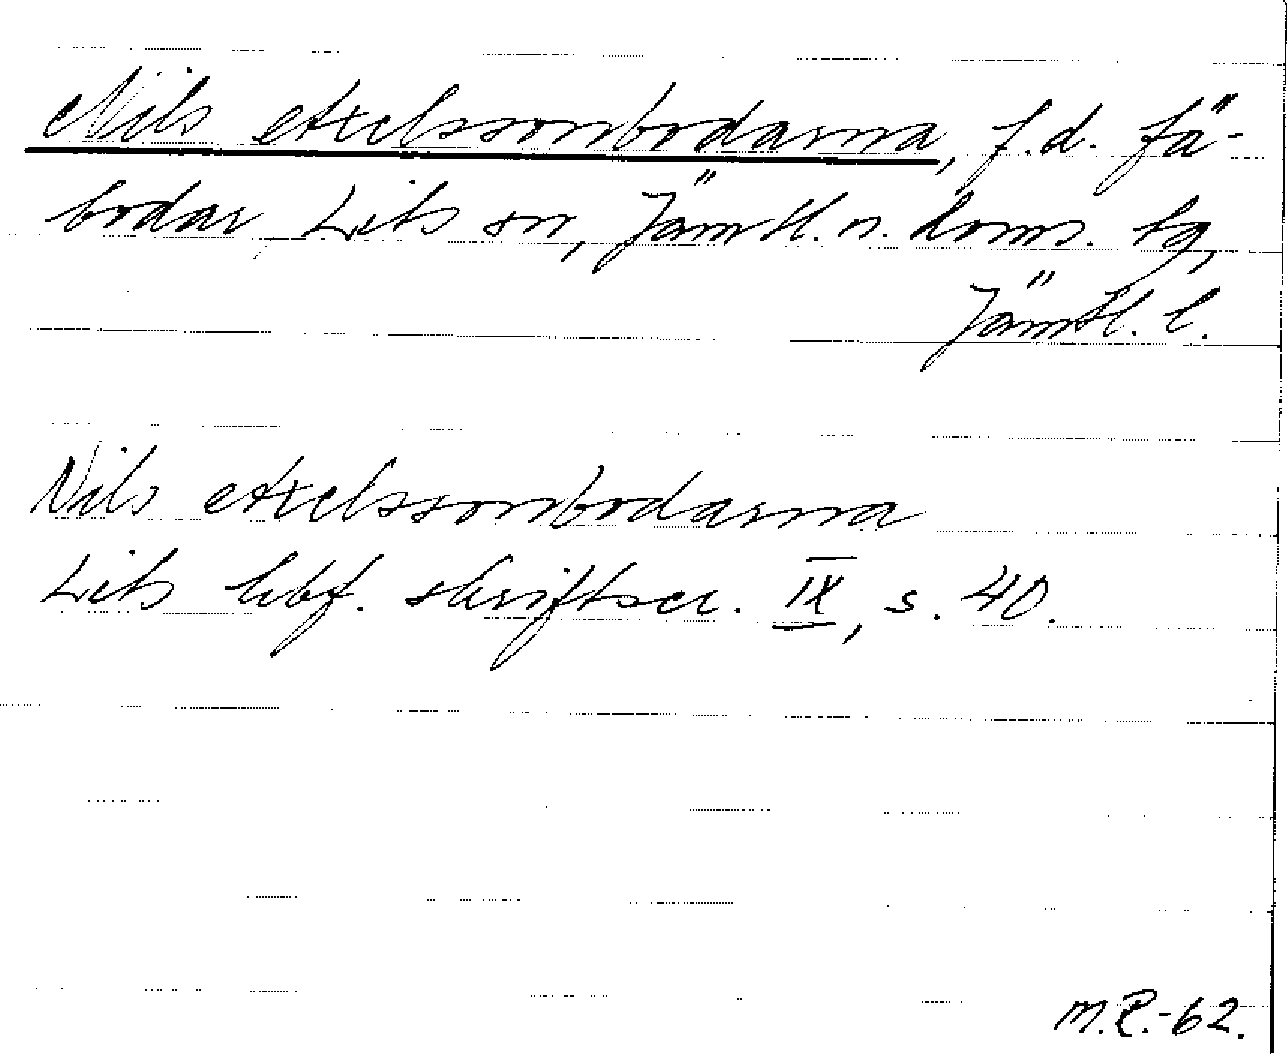 Nils Axelssonbodarna, f.d. fä-
bodar, Lits sn, Jämtl. n. doms. tg,
Jämtl. l.
Nils Axelssonbodarna
Lits hbf. skriftser. IX, s. 40.
M.R.-62.